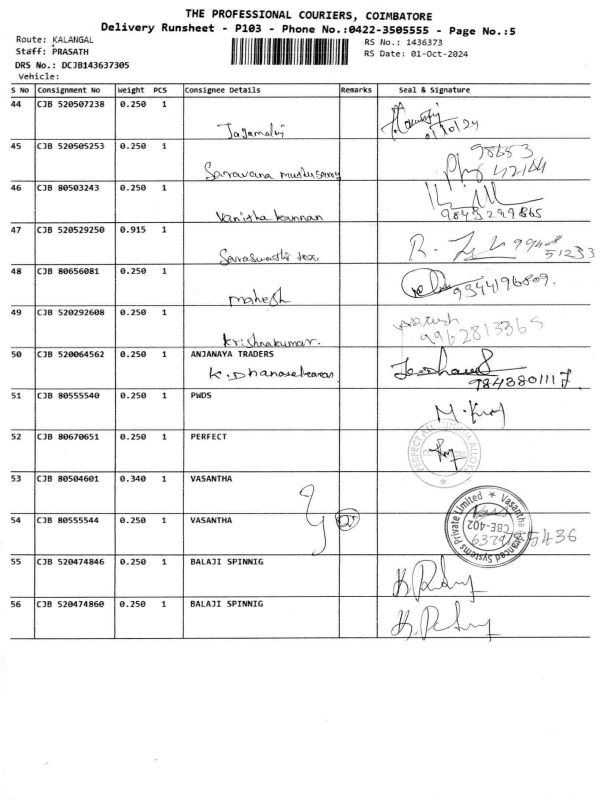 THE PROFESSIONAL COURIERS, COIMBATORE
Delivery Runsheet - P103 - Phone No.:0422-3505555 - Page No.:5
Route: KALANGAL
RS No.: 1436373
Staff: PRASATH
RS Date: 01-Oct-2024
DRS No.: DCJB143637305
Vehicle:
S No Consignment No Weight PCS Consignee Details Remarks Seal & Signature
44 CJB 520507238 0.250 1
Jagamani
45 CJB 520505253 0.250 1
98653
Saravana muthusamy
42144
46 CJB 80503243 0.250 1
Vanitha kannan
9843299865
47 CJB 520529250 0.915 1
99408
51233
Saraswathi tex
48 CJB 80656081 0.250 1
mahesh
9344196809.
49 CJB 520292608 0.250 1
9962813365
krishnakumar.
50 CJB 520064562 0.250 1 ANJANAYA TRADERS
K. Dhanasekaran
9843801117
51 CJB 80555540 0.250 1 PWDS
52 CJB 80670651 0.250 1 PERFECT
53 CJB 80504601 0.340 1 VASANTHA
54 CJB 80555544 0.250 1 VASANTHA
Vasantha Advanced Systems Private Limited
CBE-402
55 CJB 520474846 0.250 1 BALAJI SPINNIG
56 CJB 520474860 0.250 1 BALAJI SPINNIG